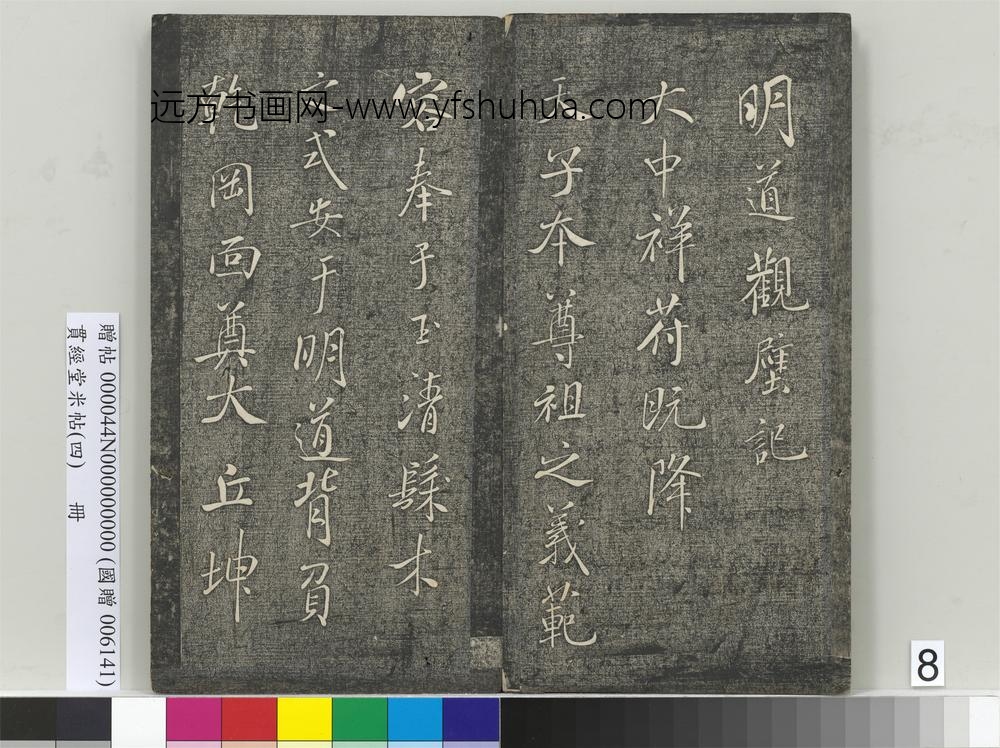 明道觀壁記
大中祥符既降
天子本尊祖之義範
容奉于玉清髹木
六式安于明道背負
乾岡面奠大丘坤
远方书画网-www.yfshuhua.com
贈帖 000044N000000000 (國贈 006141)
貫經堂米帖(四) 冊
8